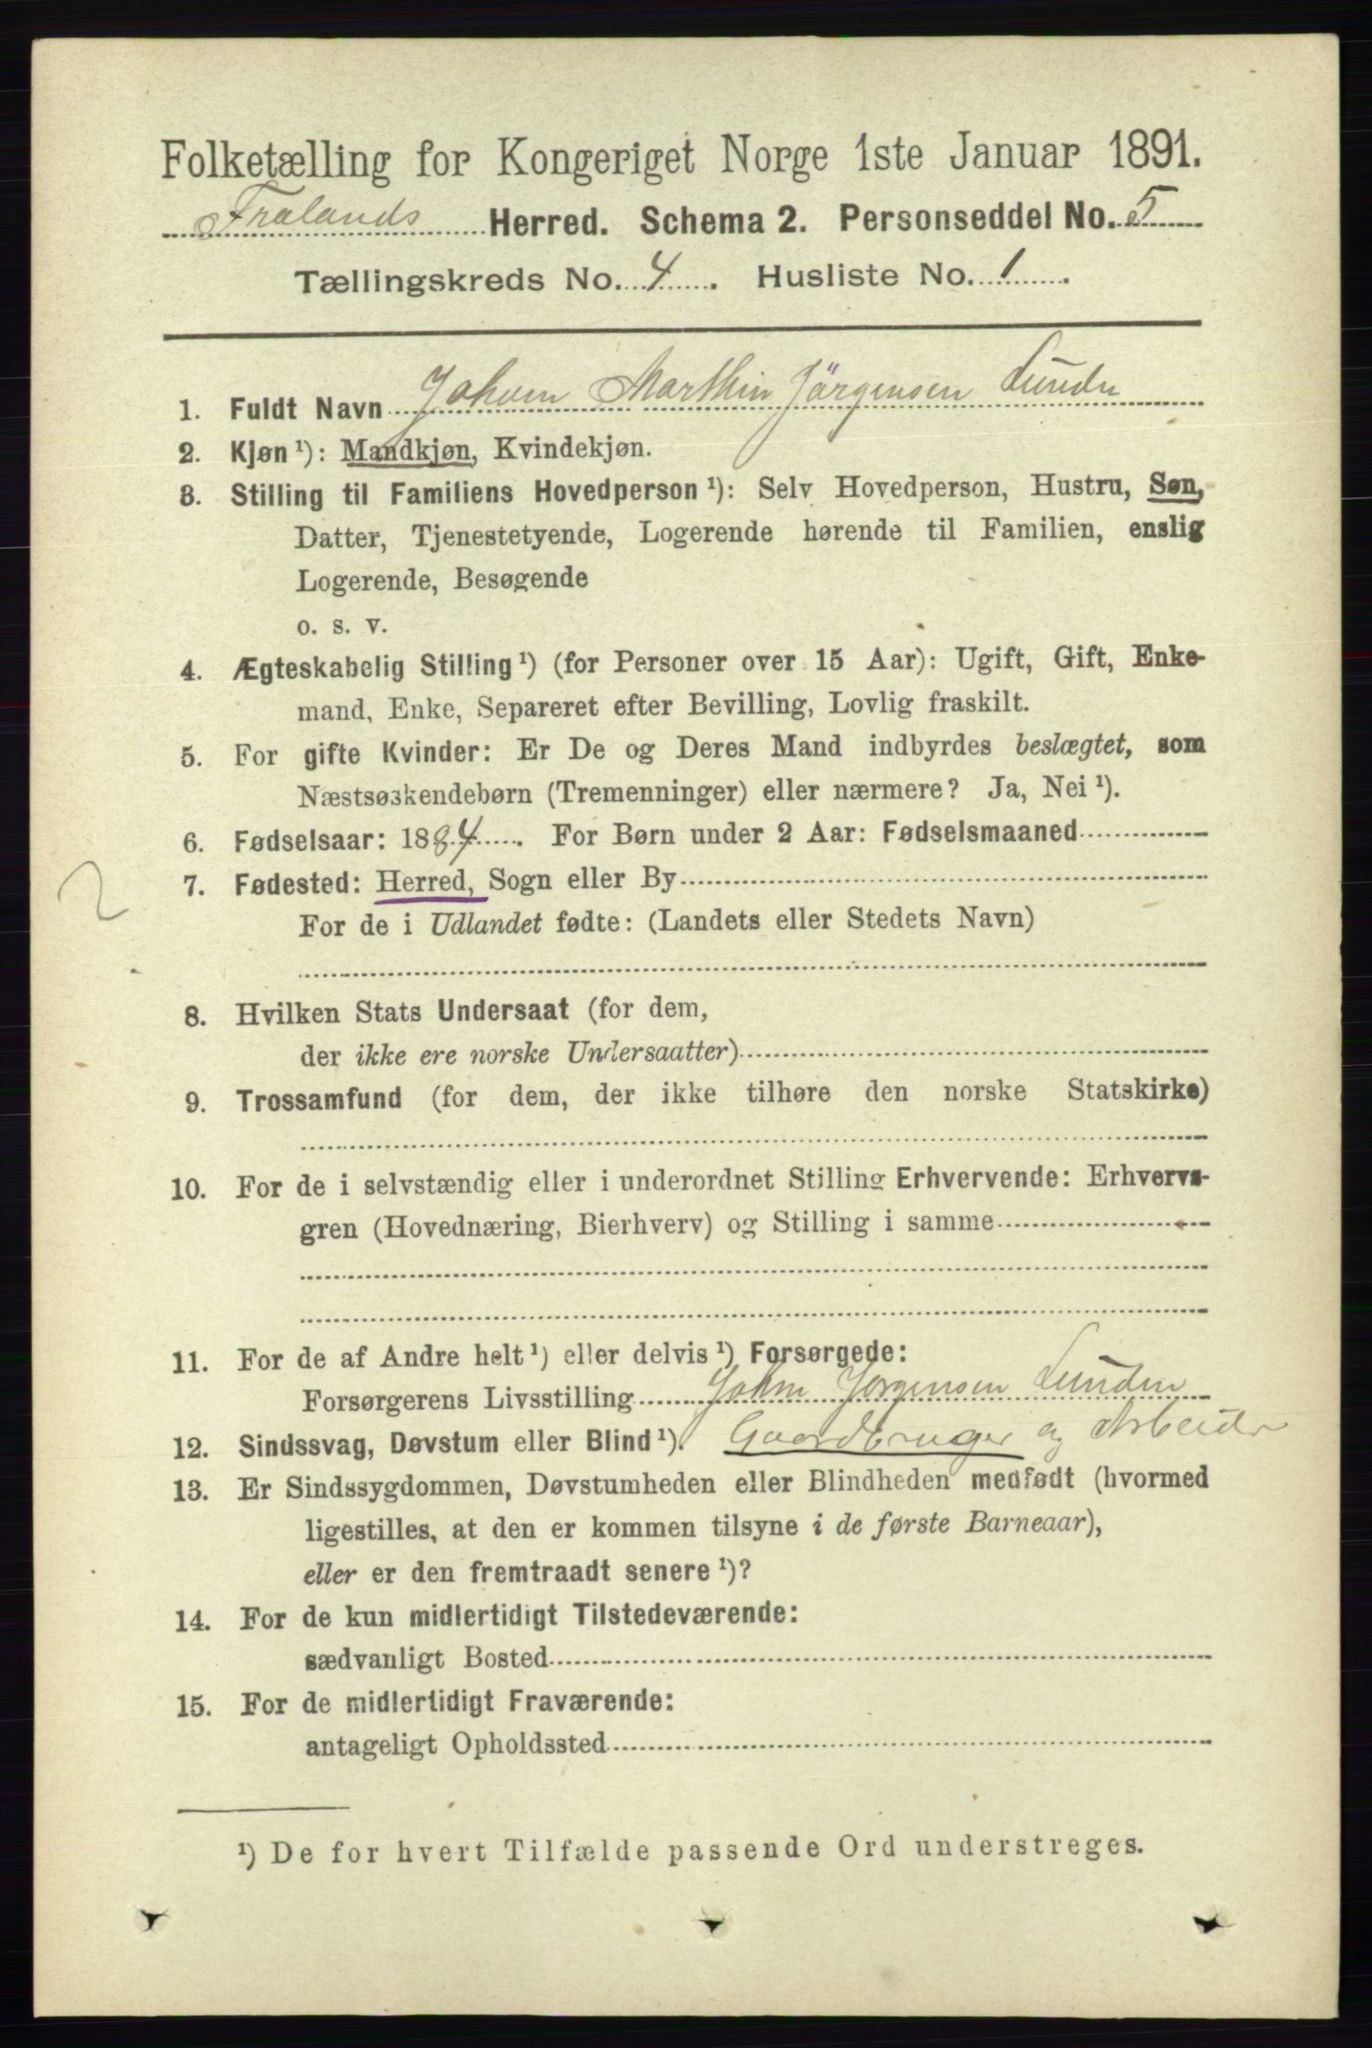 Folketælling for Kongeriget Norge 1ste Januar 1891.
Frolands Herred. Schema 2. Personseddel No. 5
Tællingskreds No. 4. Husliste No. 1.
1. Fuldt Navn Johan Marthin Jörgensen Lunden
2. Kjøn ¹): Mandkjøn, Kvindekjøn.
3. Stilling til Familiens Hovedperson ¹): Selv Hovedperson, Hustru, Søn,
Datter, Tjenestetyende, Logerende hørende til Familien, enslig
Logerende, Besøgende
o. s. v.
4. Ægteskabelig Stilling ¹) (for Personer over 15 Aar): Ugift, Gift, Enke-
mand, Enke, Separeret efter Bevilling, Lovlig fraskilt.
5. For gifte Kvinder: Er De og Deres Mand indbyrdes beslægtet, som
Næstsøskendebørn (Tremenninger) eller nærmere? Ja, Nei ¹).
6. Fødselsaar: 1884. For Børn under 2 Aar: Fødselsmaaned
2
7. Fødested: Herred, Sogn eller By
For de i Udlandet fødte: (Landets eller Stedets Navn)
8. Hvilken Stats Undersaat (for dem,
der ikke ere norske Undersaatter)
9. Trossamfund (for dem, der ikke tilhøre den norske Statskirke)
10. For de i selvstændig eller i underordnet Stilling Erhvervende: Erhvervs-
gren (Hovednæring, Bierhverv) og Stilling i samme
11. For de af Andre helt ¹) eller delvis ¹) Forsørgede:
Forsørgerens Livsstilling John Jorgensen Lunden
12. Sindssvag, Døvstum eller Blind ¹). Gaardbruger og Arbeider
13. Er Sindssygdommen, Døvstumheden eller Blindheden medfødt (hvormed
ligestilles, at den er kommen tilsyne i de første Barneaar),
eller er den fremtraadt senere ¹)?
14. For de kun midlertidigt Tilstedeværende:
sædvanligt Bosted
15. For de midlertidigt Fraværende:
antageligt Opholdssted
¹) De for hvert Tilfælde passende Ord understreges.